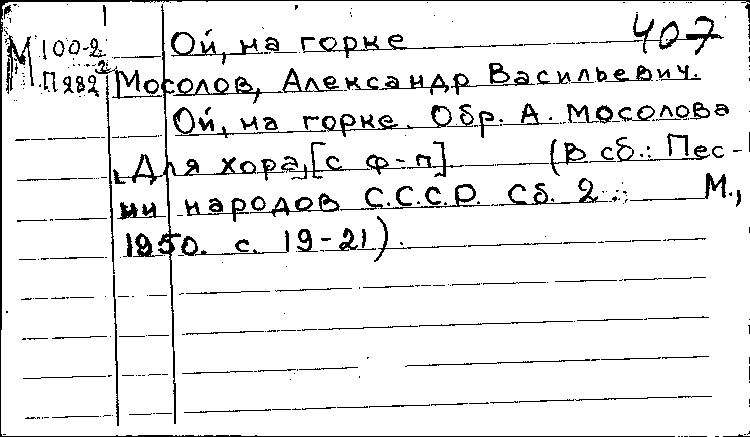 М 100-2 Ой, на горке 407
П282 Мосолов, Александр Васильевич.
Ой, на горке. Обр. А. Мосолова
Для хора, [с ф-п] (В сб.: Пес-
ни народов С.С.С.Р. Сб. 2. М.,
1950. с. 19-21).